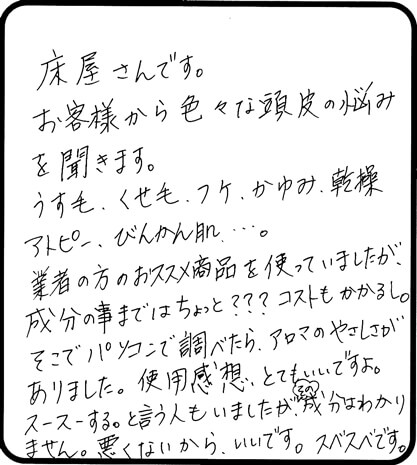 床屋さんです。
お客様から色々な頭皮の悩み
を聞きます。
うす毛、くせ毛、フケ、かゆみ、乾燥
アトピー、びんかん肌、…。
業者の方のおススメ商品を使っていましたが、
成分の事まではちょっと???コストもかかるし。
そこでパソコンで調べたら、アロマのやさしさが
ありました。使用感想、とてもいいですよ。
スースーする。と言う人もいましたが、その成分はわかり
ません。悪くないから、いいです。スベスベです。